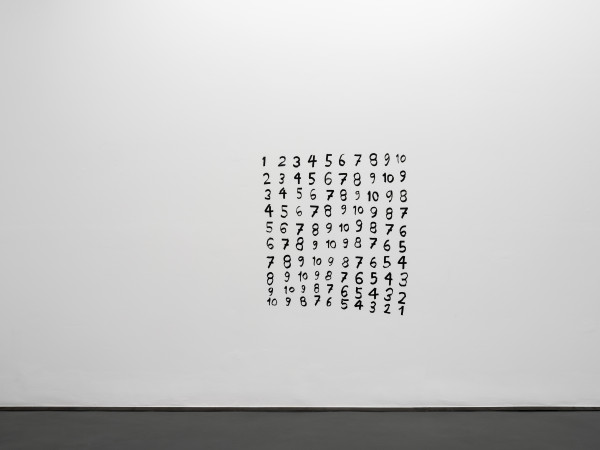 1 2 3 4 5 6 7 8 9 10
2 3 4 5 6 7 8 9 10 9
3 4 5 6 7 8 9 10 9 8
4 5 6 7 8 9 10 9 8 7
5 6 7 8 9 10 9 8 7 6
6 7 8 9 10 9 8 7 6 5
7 8 9 10 9 8 7 6 5 4
8 9 10 9 8 7 6 5 4 3
9 10 9 8 7 6 5 4 3 2
10 9 8 7 6 5 4 3 2 1